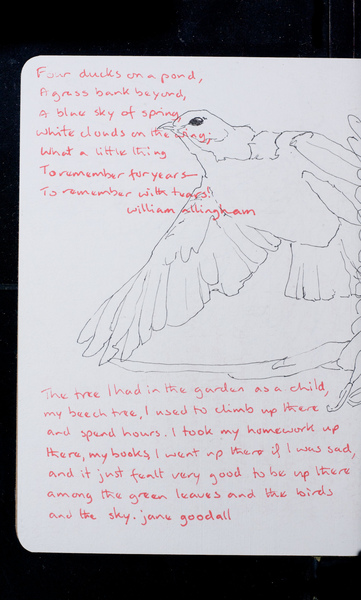 Four ducks on a pond,
A grass bank beyond,
A blue sky of spring,
White clouds on the wing;
What a little thing
To remember for years—
To remember with tears!
william allingham
The tree I had in the garden as a child,
my beech tree, I used to climb up there
and spend hours. I took my homework up
there, my books, I went up there if I was sad,
and it just fealt very good to be up there
among the green leaves and the birds
and the sky. jane goodall